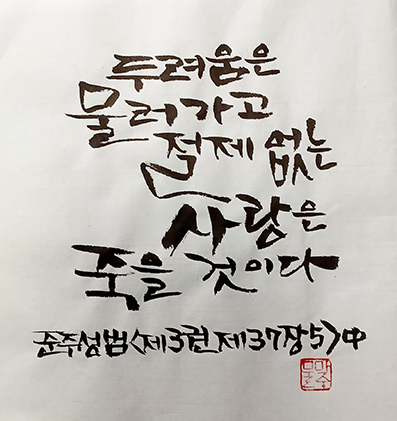 두려움은
물러가고
절제 없는
사랑은
죽을 것이다
준주성범<제3권 제37장5>中